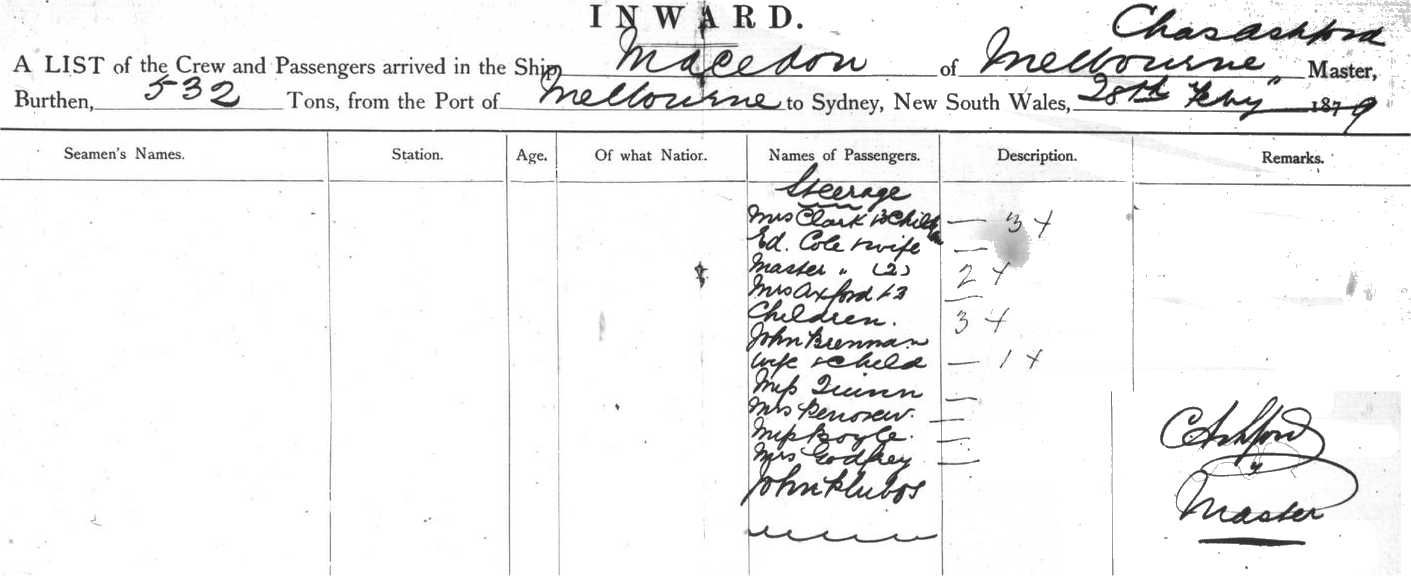 INWARD.
Chas Ashford
A LIST of the Crew and Passengers arrived in the Ship Macedon of Melbourne Master,
Burthen, 532 Tons, from the Port of Melbourne to Sydney, New South Wales, 28th Feby 1879
Seamen's Names. Station. Age. Of what Nation. Names of Passengers. Description. Remarks.
Steerage
Mrs Clark & 3 Child — 3 +
Ed. Cole & wife —
Master " (2) 2 +
Mrs Axford & 3 —
Children. 3 +
John Brennan
wife & child — 1 +
Miss Quinn —
Mrs —
Miss Boyle. —
Mrs Godfrey —
John
C Ashford
Master